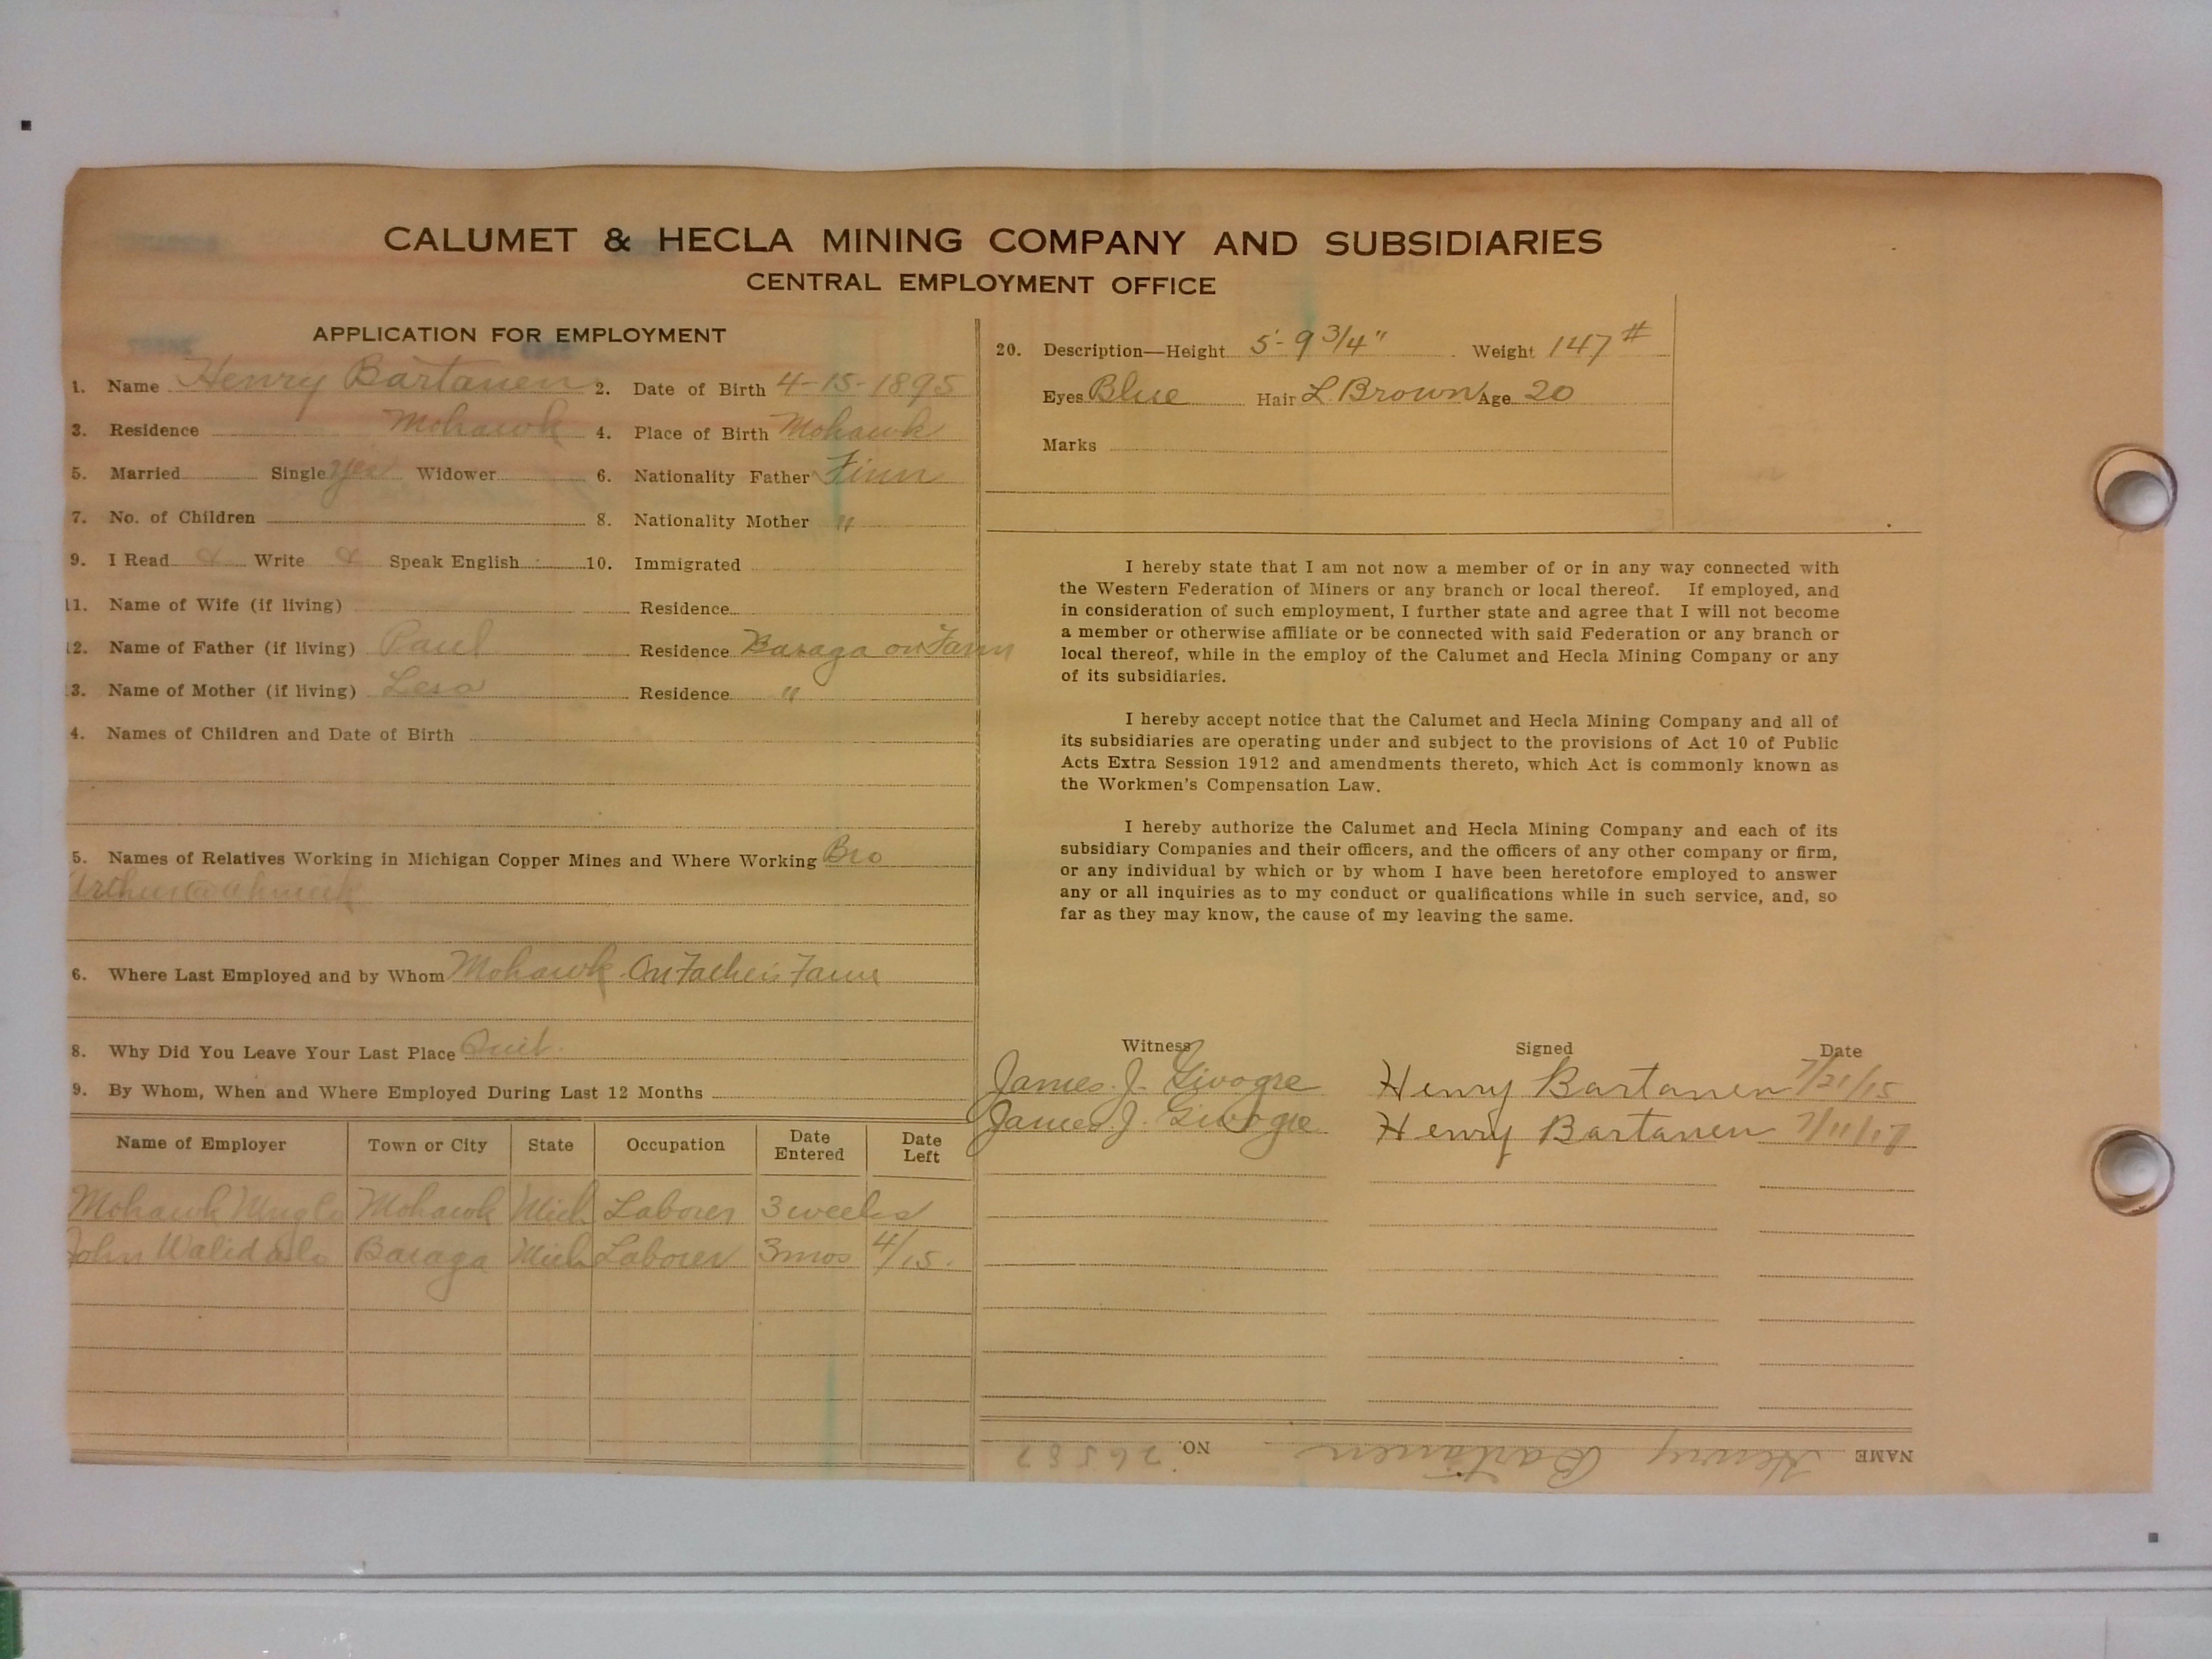 CALUMET & HECLA MINING COMPANY AND SUBSIDIARIES
CENTRAL EMPLOYMENT OFFICE
APPLICATION FOR EMPLOYMENT
1. Name Henry Bartanen 2. Date of Birth 4-15-1895
3. Residence Mohawk 4. Place of Birth Mohawk
5. Married Single yes Widower 6. Nationality Father Finn
7. No. of Children 8. Nationality Mother "
9. I Read & Write & Speak English 10. Immigrated
11. Name of Wife (if living) Residence
12. Name of Father (if living) Paul Residence Baraga on Farm
3. Name of Mother (if living) Lesa Residence "
4. Names of Children and Date of Birth
5. Names of Relatives Working in Michigan Copper Mines and Where Working Bro
Arthur @ Ahmeek
6. Where Last Employed and by Whom Mohawk. On Father's Farm
8. Why Did You Leave Your Last Place Quit.
9. By Whom, When and Where Employed During Last 12 Months
Name of Employer Town or City State Occupation Date Entered Date Left
Mohawk Mohawk Mich Laborer 3 weeks
John Baraga Mich Laborer 3 mos 4/15.
20. Description—Height 5'-9 3/4" Weight 147#
Eyes Blue Hair L. Brown Age 20
Marks
I hereby state that I am not now a member of or in any way connected with
the Western Federation of Miners or any branch or local thereof. If employed, and
in consideration of such employment, I further state and agree that I will not become
a member or otherwise affiliate or be connected with said Federation or any branch or
local thereof, while in the employ of the Calumet and Hecla Mining Company or any
of its subsidiaries.
I hereby accept notice that the Calumet and Hecla Mining Company and all of
its subsidiaries are operating under and subject to the provisions of Act 10 of Public
Acts Extra Session 1912 and amendments thereto, which Act is commonly known as
the Workmen's Compensation Law.
I hereby authorize the Calumet and Hecla Mining Company and each of its
subsidiary Companies and their officers, and the officers of any other company or firm,
or any individual by which or by whom I have been heretofore employed to answer
any or all inquiries as to my conduct or qualifications while in such service, and, so
far as they may know, the cause of my leaving the same.
Witness Signed Date
James. J. Givogre Henry Bartanen 7/21/15
James. J. Givogre Henry Bartanen 7/11/17
NAME Henry Bartanen NO. 26587